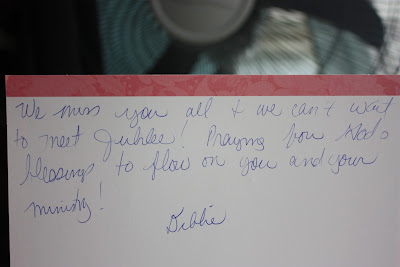 We miss you all + we can't wait
to meet Jubilee! Praying for God's
blessings to flow on you and your
ministry!
Debbie